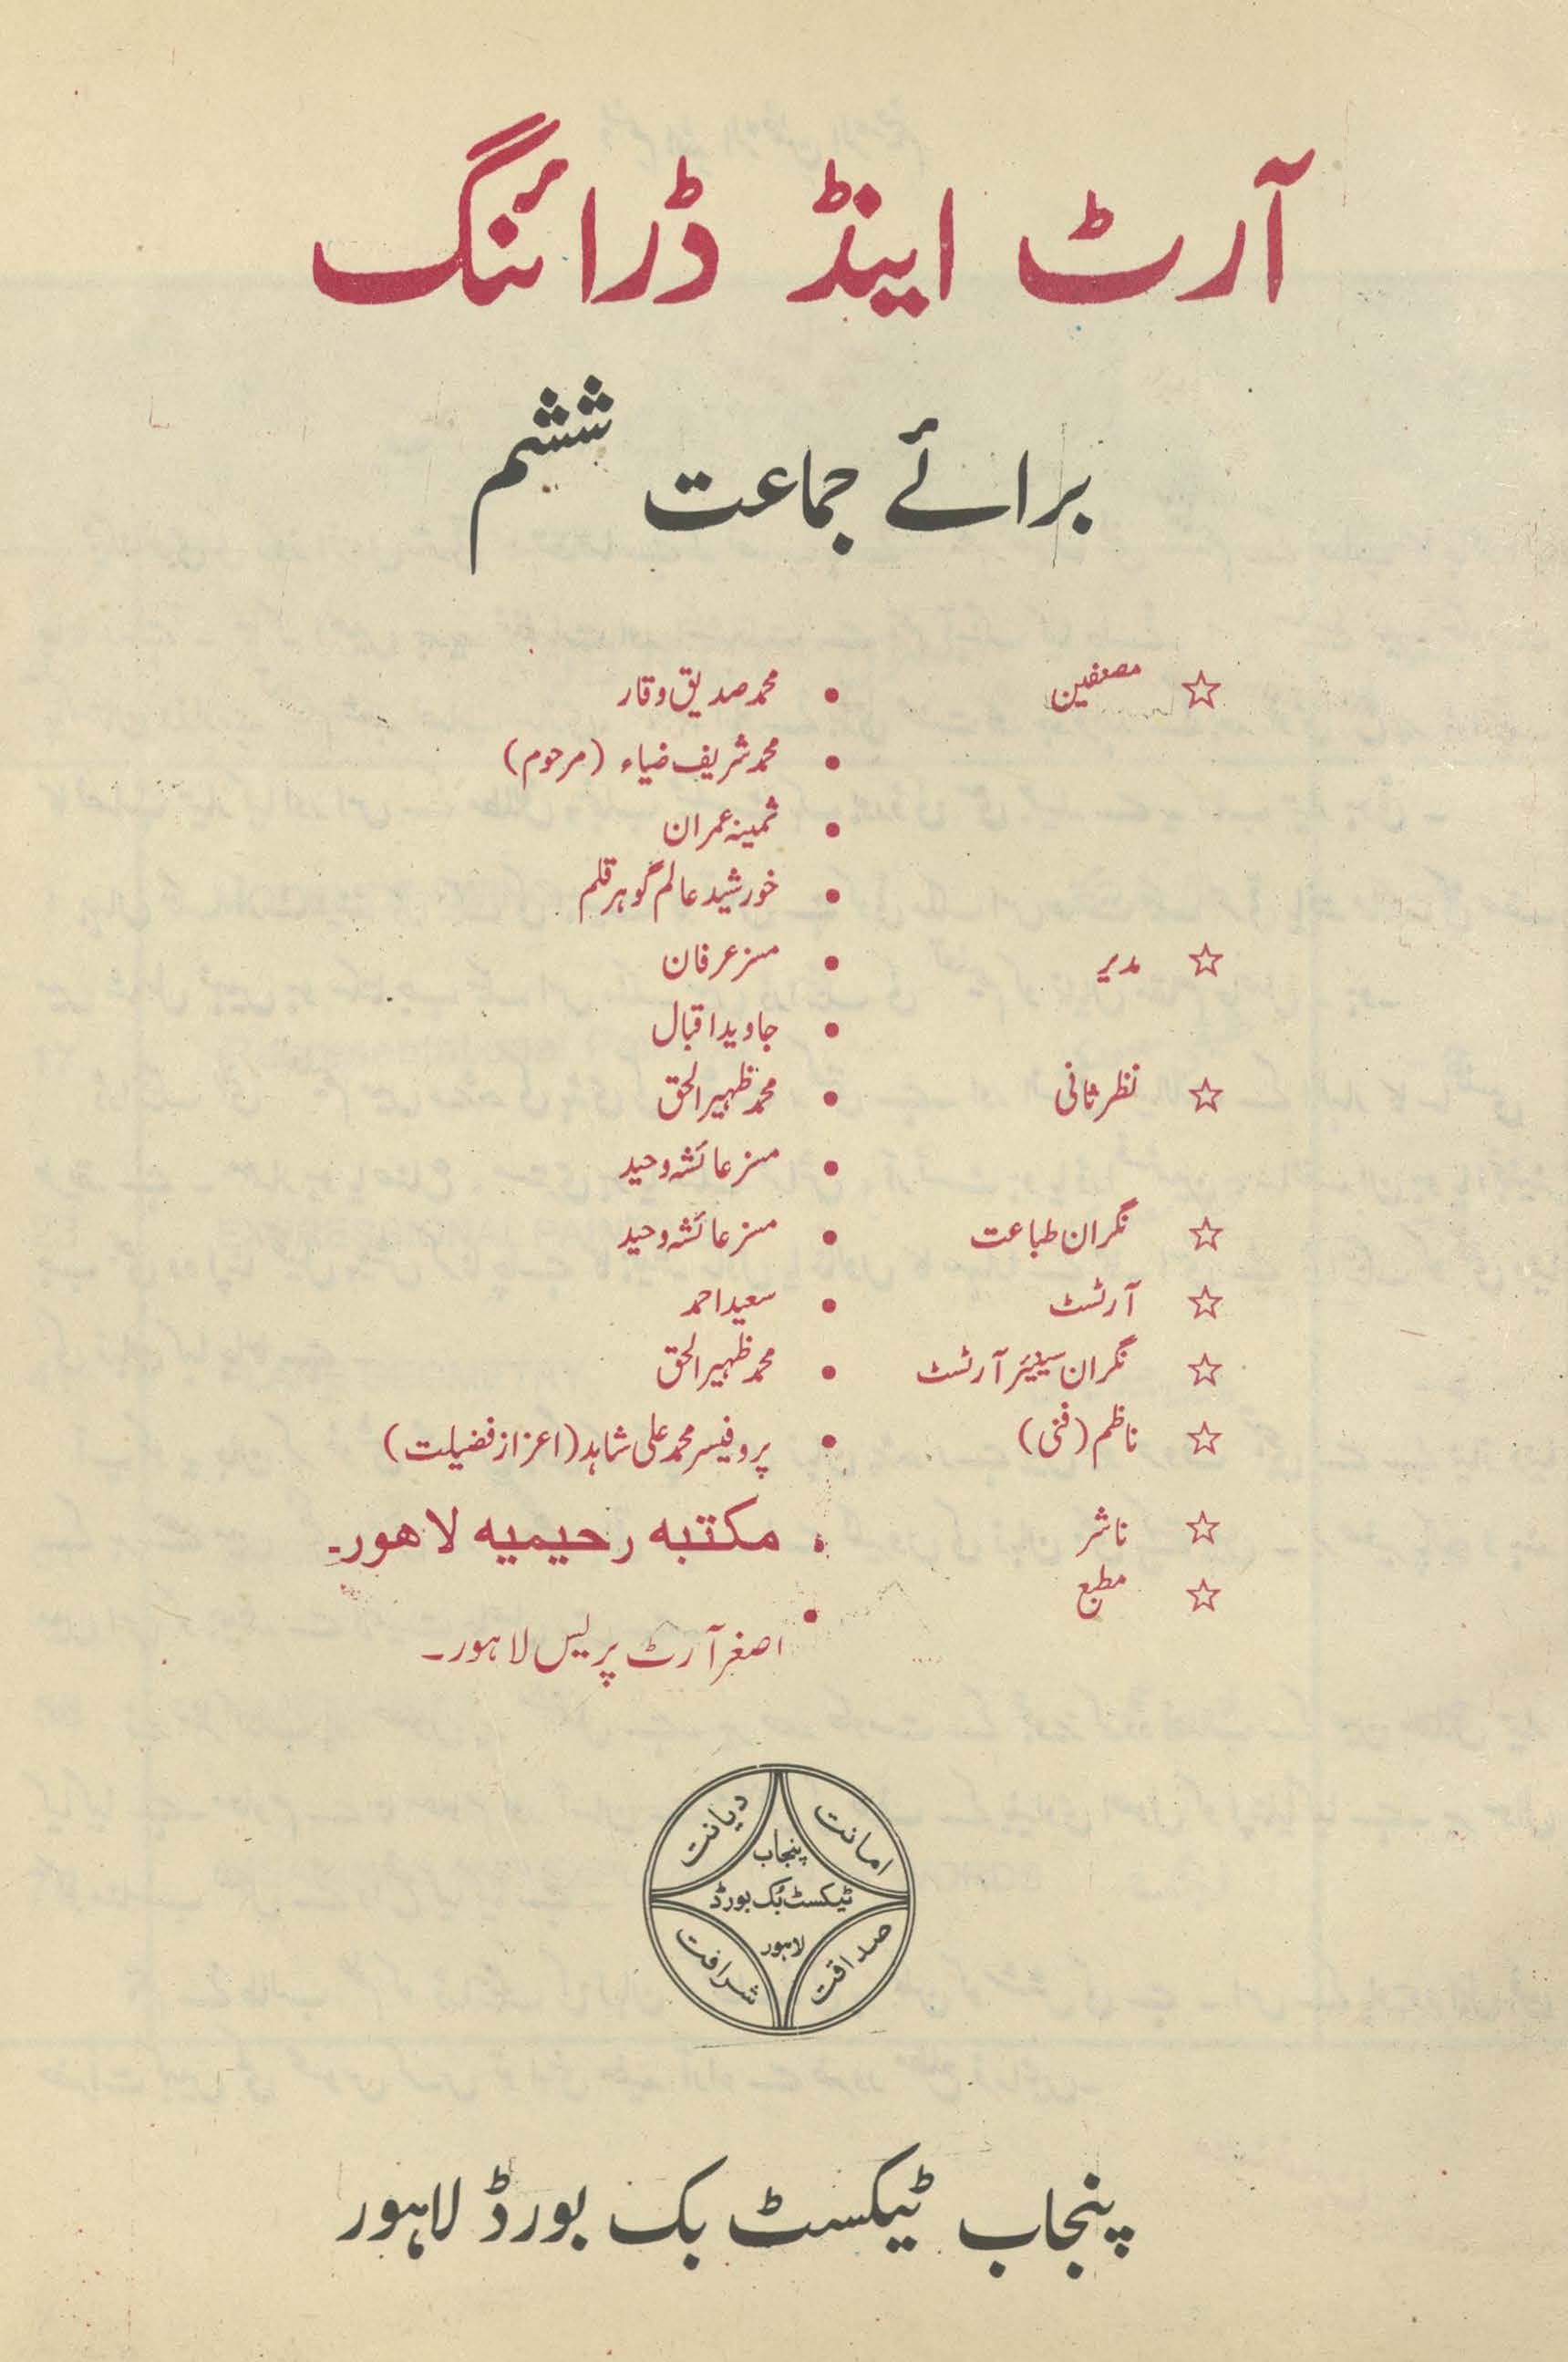 آرٹ اینڈ ڈرائنگ
برائے جماعت ششم
☆ مصنفین • محمد صدیق وقار
• محمد شریف ضیاء (مرحوم)
• ثمینہ عمران
• خورشید عالم گوہر قلم
☆ مدیر • مسز عرفان
• جاوید اقبال
☆ نظر ثانی • محمد ظہیر الحق
• مسز عائشہ وحید
☆ نگران طباعت • مسز عائشہ وحید
☆ آرٹسٹ • سعید احمد
☆ نگران سینیئر آرٹسٹ • محمد ظہیر الحق
☆ ناظم (فنی) • پروفیسر محمد علی شاہد (اعزاز فضیلت)
☆ ناشر • مکتبہ رحیمیہ لاھور۔
☆ مطبع • اصغر آرٹ پریس لاہور۔
امانت
دیانت
پنجاب
ٹیکسٹ بُک بورڈ
لاہور
صداقت
شرافت
پنجاب ٹیکسٹ بک بورڈ لاہور